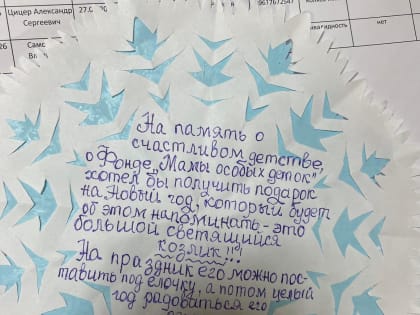 Цицер Александр
Сергеевич
27.0
9617672547
инвалидность
нет
26
Само
На память о
счастливом детстве,
о Фонде „Мамы особых деток"
хотел бы получить подарок
на Новый год, который будет
об этом напоминать - это
большой светящийся
козлик!!!
На праздник его можно пос-
тавить под ёлочку, а потом целый
год радоваться его